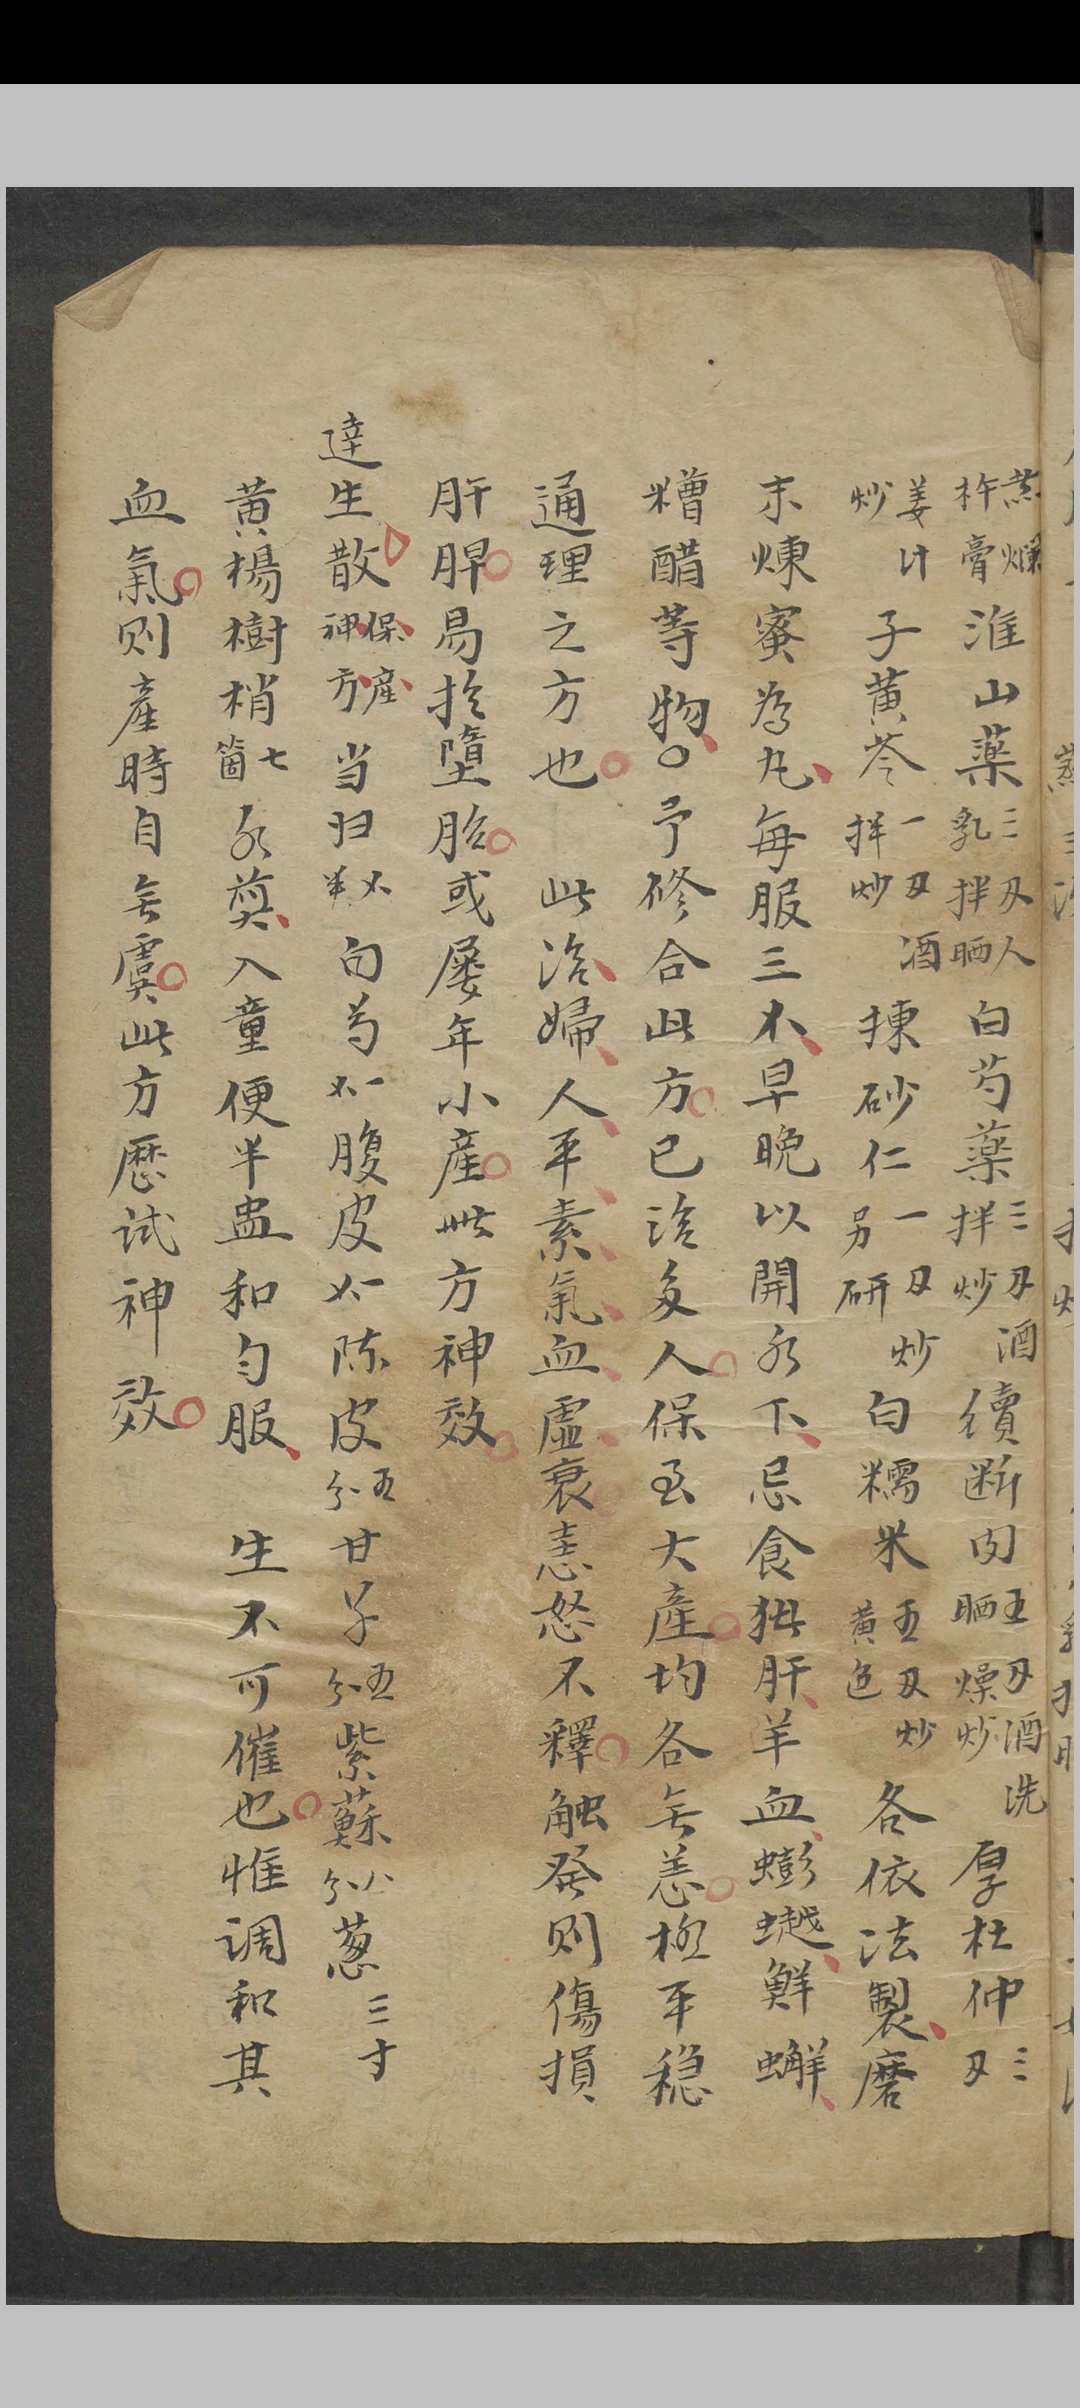 蒸爛杵膏淮山藥三刄人乳拌晒白芍藥三刄酒拌炒續断肉五刄酒洗晒燥炒厚杜仲三刄
姜汁炒子黄芩一刄酒拌炒揀砂仁一刄炒另研白糯米五刄炒黄色各依法製磨
末煉蜜為丸每服三不早晚以開水下忌食猪肝羊血蟛蟚鮮蠏
糟醋等物〇予修合此方已治多人保至大產均各無恙極平穏
通理之方也 此治婦人平素氣血虛衰恚怒不釋触発则傷損
肝脾易於墮胎或屡年小產此方神效
達生散保產神方当归不半白芍一不腹皮一不陈皮五分甘草五分紫蘇八分葱三寸
黄楊樹梢七箇水煎入童便半盅和匀服 生不可催也惟调和其
血氣则產時自無虞此方歷试神效